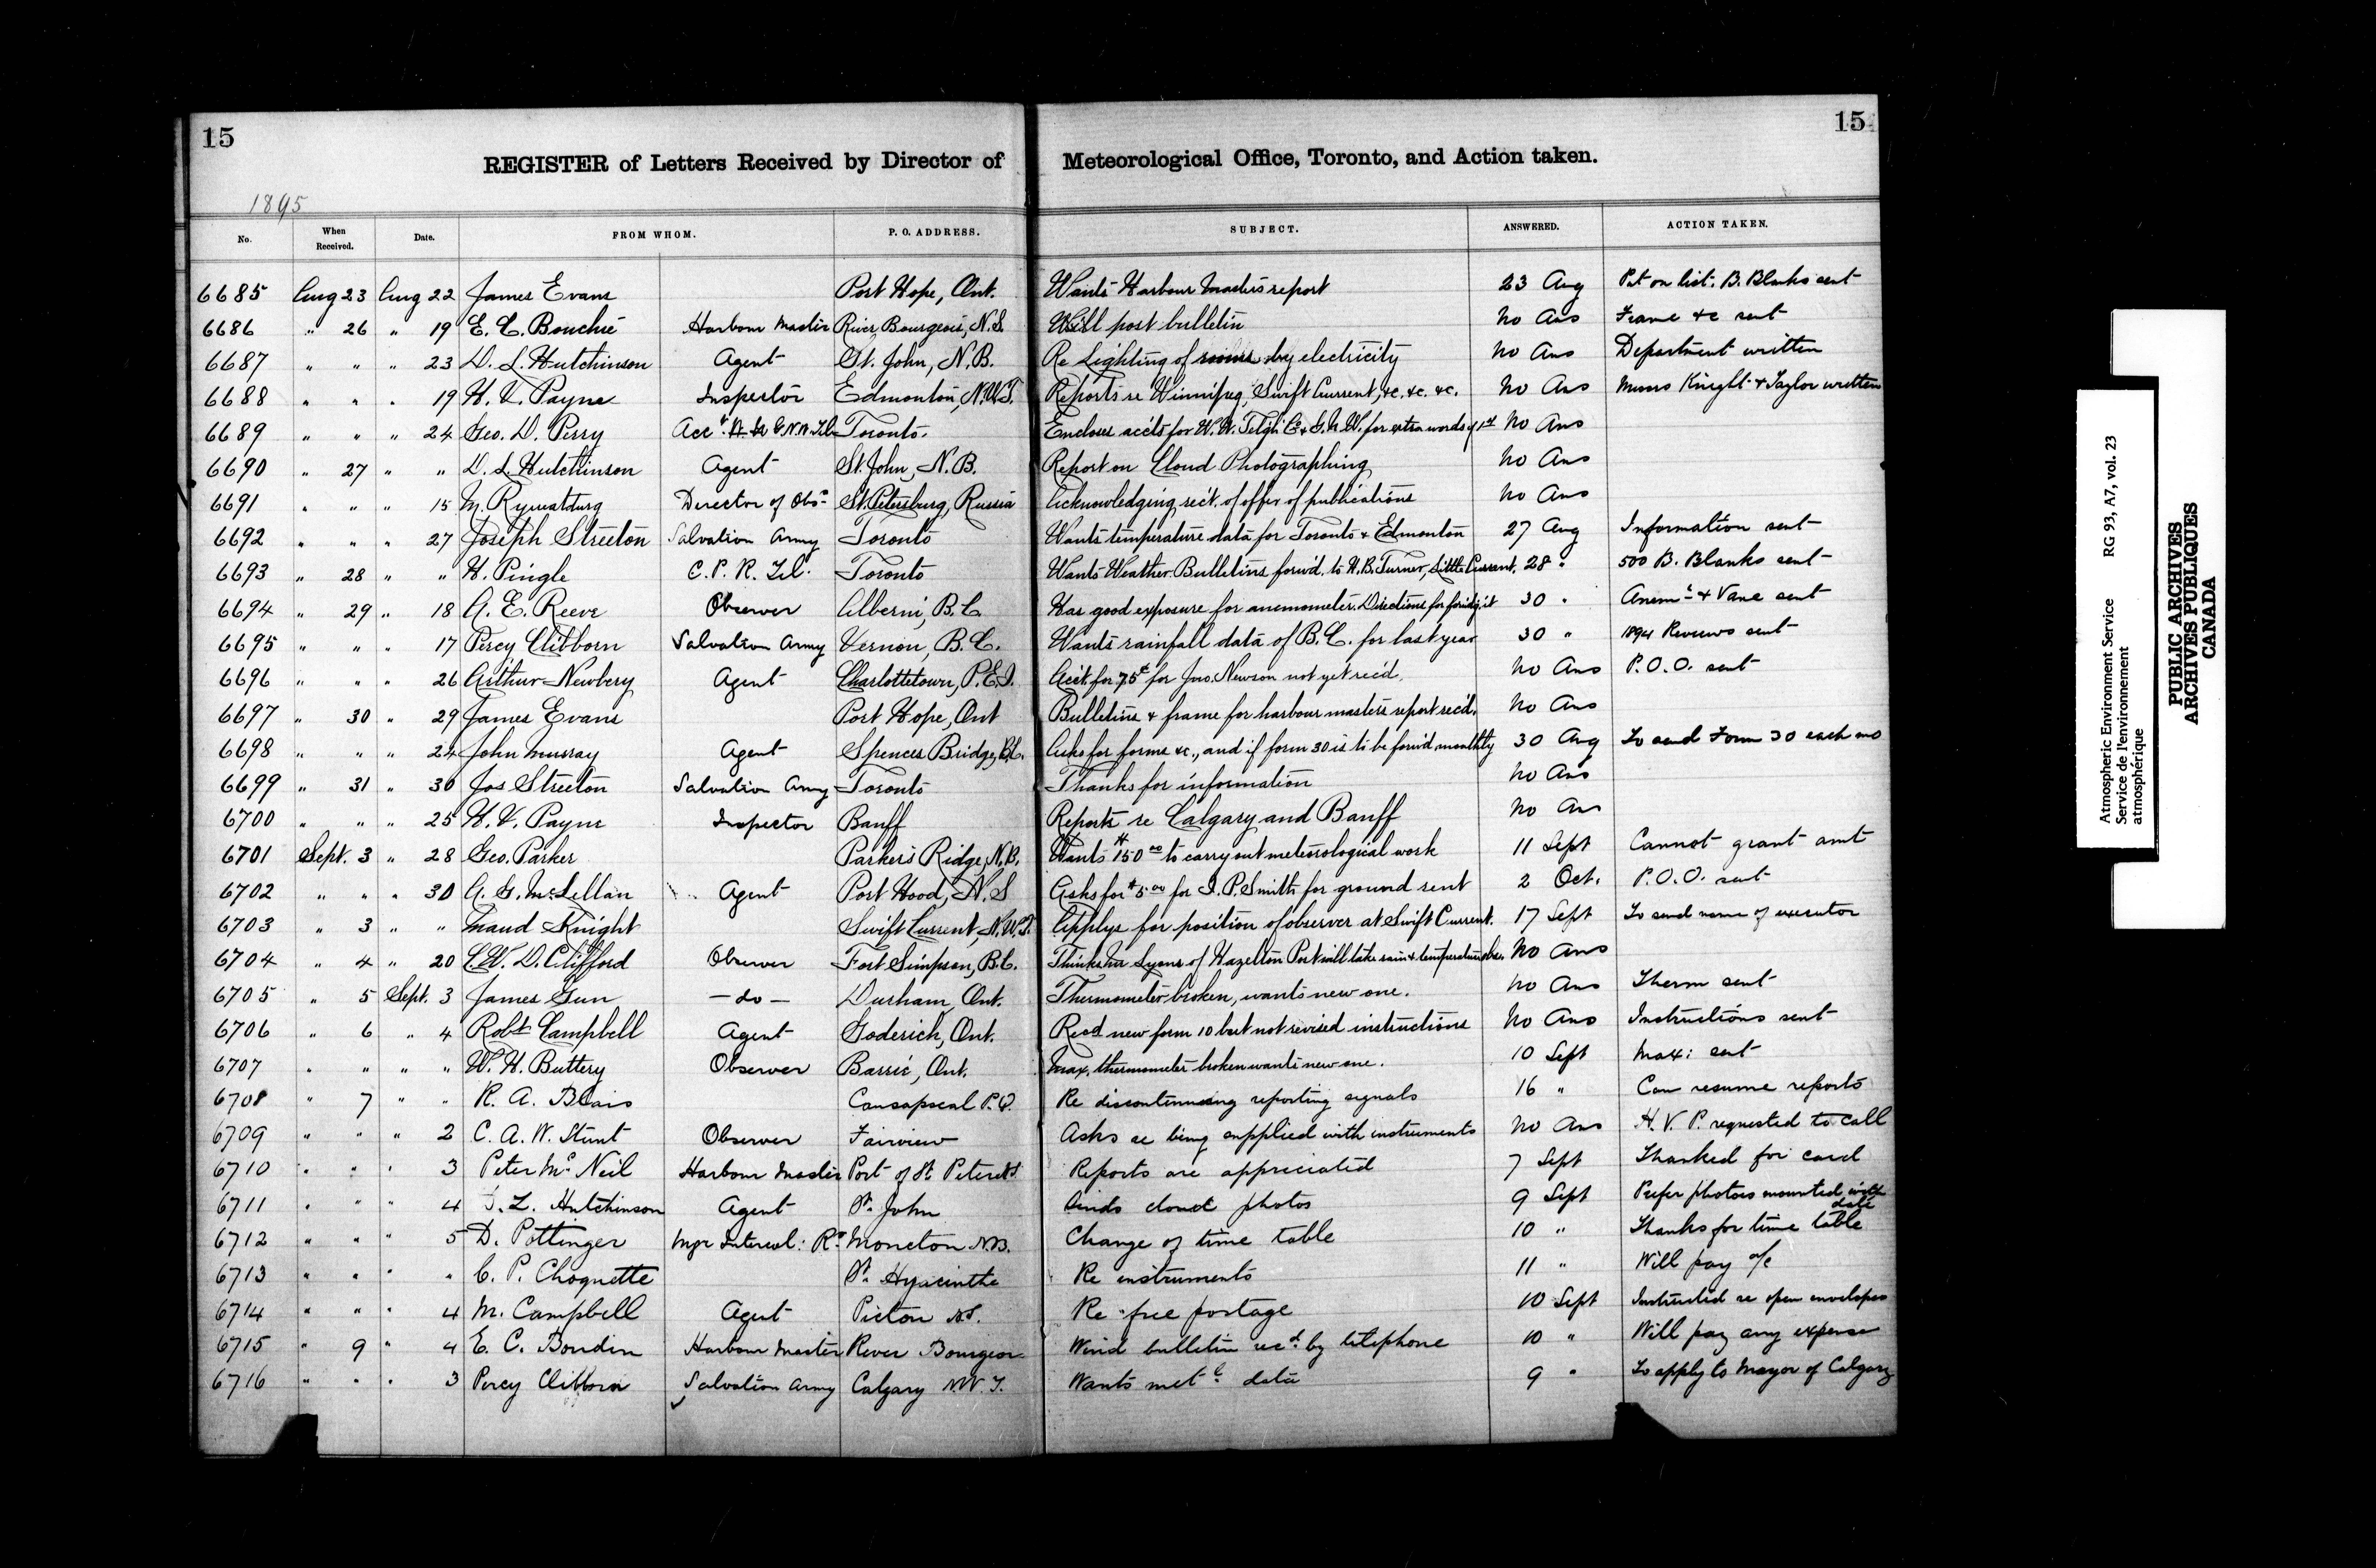 15
15
REGISTER of Letters Received by Director of Meteorological Office, Toronto, and Action taken.
1895
No. When Received. Date. FROM WHOM. P. O. ADDRESS. SUBJECT. ANSWERED. ACTION TAKEN.
6685 Aug 23 Aug 22 James Evans Port Hope, Ont. Wants Harbour Masters report 23 Aug Put on list. B. Blanks sent
6686 " 26 " 19 E. C. Bouchie Harbour Master River Bourgeois, N.S. Will post bulletin No Ans Frame &c sent
6687 " " " 23 D. L. Hutchinson Agent St. John, N.B. Re Lighting of rooms by electricity No Ans Department written
6688 " " " 19 H. V. Payne Inspector Edmonton, N.W.T. Reports re Winnipeg, Swift Current, &c. &c. &c. No Ans Messrs Knight & Taylor written
6689 " " " 24 Geo. D. Perry Acct. G.N.W. Tel. Toronto. Encloses accts for W.U. Telgh Co & G.N.W. for extra words of 1st No Ans
6690 " 27 " " D. L. Hutchinson Agent St. John, N.B. Report on Cloud Photographing No Ans
6691 " " " 15 M. Director of Obsy St. Petersburg, Russia Acknowledging rec't. of offer of publications No Ans
6692 " " " 27 Joseph Streeton Salvation Army Toronto Wants temperature data for Toronto & Edmonton 27 Aug Information sent
6693 " 28 " " H. Pingle C. P. R. Tel. Toronto Wants Weather Bulletins forw'd. to W. B. Turner, Little Current. 28 " 500 B. Blanks sent
6694 " 29 " 18 A. E. Reeve Observer Alberni, B.C. Has good exposure for anemometer. Directions for it 30 " Anemr & Vane sent
6695 " " " 17 Percy Clibborn Salvation Army Vernon, B.C. Wants rainfall data of B.C. for last year 30 " 1894 Reviews sent
6696 " " " 26 Arthur Newbery Agent Charlottetown, P.E.I. Acct. for 75¢ for Jno. Newson not yet rec'd. No Ans P.O.O. sent
6697 " 30 " 29 James Evans Port Hope, Ont Bulletins & frame for harbour masters report rec'd. No Ans
6698 " " " 24 John Murray Agent Spences Bridge, B.C. Asks for forms &c., and if form 30 is to be forw'd monthly 30 Aug To send Form 30 each mo
6699 " 31 " 30 Jos Streeton Salvation Army Toronto Thanks for information No Ans
6700 " " " 25 H. V. Payne Inspector Banff Reports re Calgary and Banff No Ans
6701 Sept. 3 " 28 Geo. Parker Parkers Ridge, N.B. Wants $150.00 to carry out meteorological work 11 Sept Cannot grant amt
6702 " " " 30 A. G. McLellan Agent Port Hood, N.S Asks for $5.00 for I. P. Smith for ground rent 2 Oct. P.O.O. sent
6703 " 3 " " Maud Knight Swift Current, N.W.T. Applys for position of observer at Swift Current. 17 Sept To send name of executor
6704 " 4 " 20 C. W. D. Clifford Observer Fort Simpson, B.C. Thinks Mr Lyons of Hazelton Post will take rain & temperature obs. No Ans
6705 " 5 Sept. 3 James Gun — do — Durham, Ont. Thermometer broken, wants new one. No Ans Therm sent
6706 " 6 " 4 Robt Campbell Agent Goderich, Ont. Recd new form 10 but not revised instructions No Ans Instructions sent
6707 " " " " W. H. Buttery Observer Barrie, Ont. Max. thermometer broken wants new one. 10 Sept Max: sent
6708 " 7 " " R. A. Blais Causapscal P.Q. Re discontinuing reporting signals 16 " Can resume reports
6709 " " " 2 C. A. W. Stunt Observer Fairview Asks re being supplied with instruments No Ans H. V. P. requested to call
6710 " " " 3 Peter Mc Neil Harbour Master Port of St. Peters N.S. Reports are appreciated 7 Sept Thanked for card
6711 " " " 4 D. L. Hutchinson Agent St. John Sends cloud photos 9 Sept Prefer photos mounted with date
6712 " " " 5 D. Pottinger Mgr Intercol: Ry Moncton N.B. Change of time table 10 " Thanks for time table
6713 " " " " C. P. Choquette St. Hyacinthe Re instruments 11 " Will pay a/c
6714 " " " 4 M. Campbell Agent Pictou N.S. Re free postage 10 Sept Instructed re open envelopes
6715 " 9 " 4 E. C. Boudin Harbour Master River Bourgeois Wind bulletin recd. by telephone 10 " Will pay any expense
6716 " " " 3 Percy Clibborn Salvation Army Calgary N.W.T. Wants metl. data 9 " To apply to Mayor of Calgary
Atmospheric Environment Service RG 93, A7, vol. 23
Service de l'environnement
atmosphérique
PUBLIC ARCHIVES
ARCHIVES PUBLIQUES
CANADA